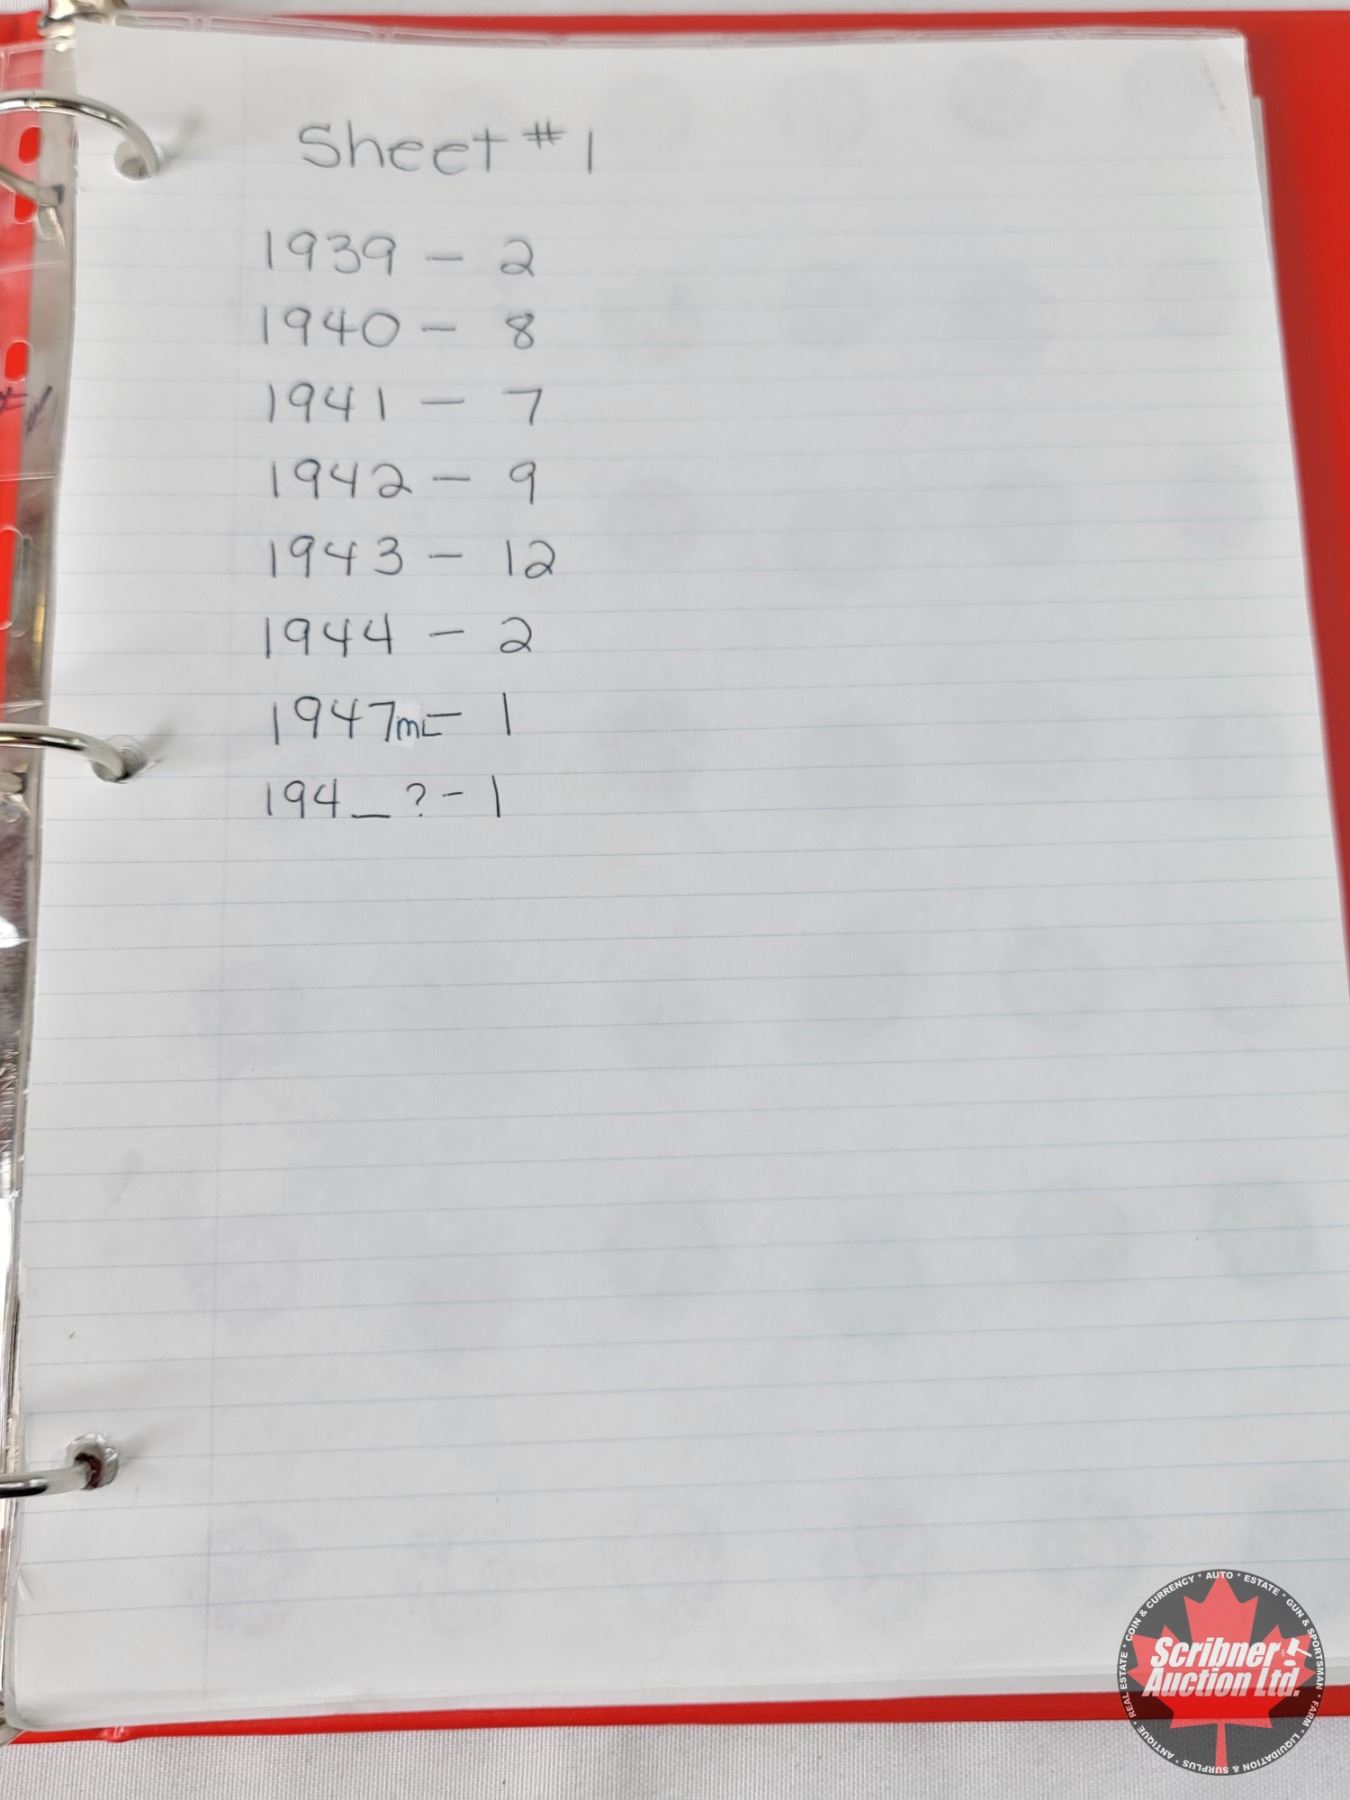 Sheet #1
1939 - 2
1940 - 8
1941 - 7
1942 - 9
1943 - 12
1944 - 2
1947mL - 1
194_ ? - 1
COIN & CURRENCY • AUTO • ESTATE • GUN & SPORTSMAN • FARM • LIQUIDATION & SURPLUS • ANTIQUE • REAL ESTATE •
Scribner
Auction Ltd.